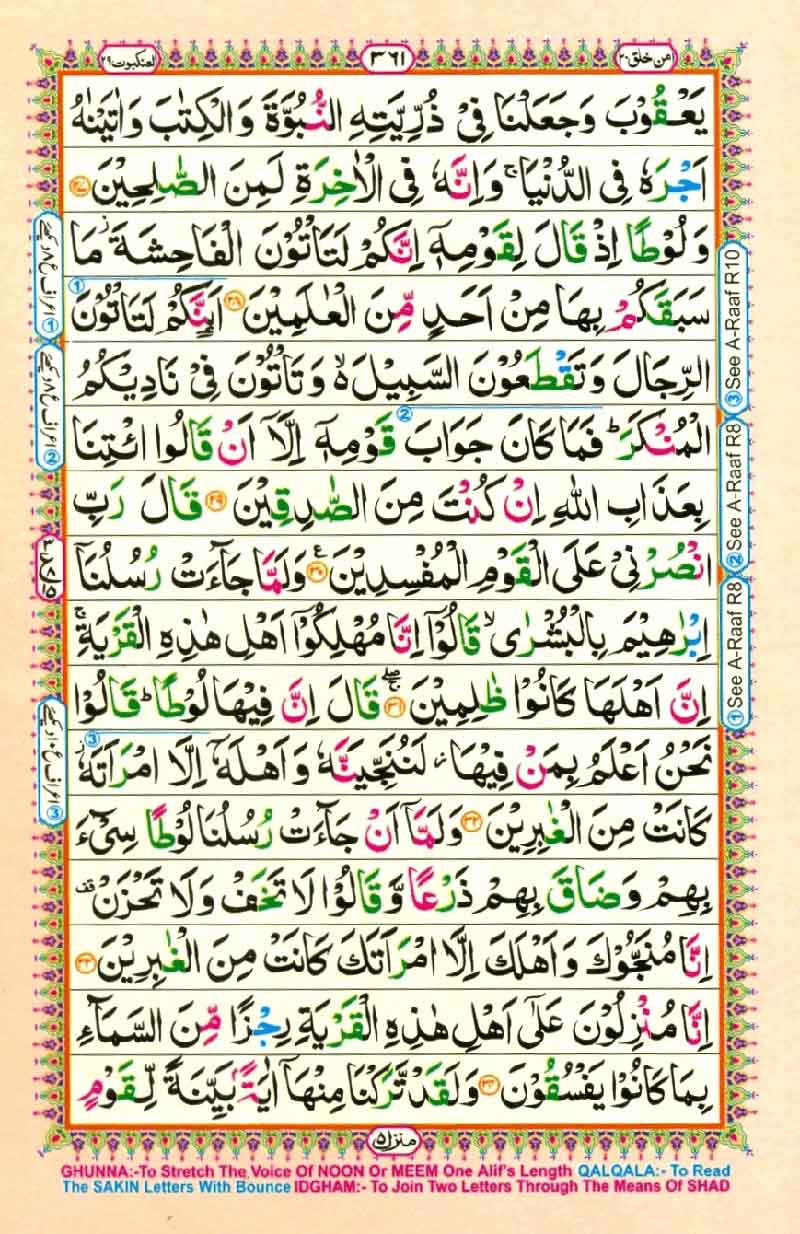 امن خلق ٢٠
٣٦١
العنكبوت ٢٩
يَعْقُوْبَ وَجَعَلْنَا فِيْ ذُرِّيَّتِهِ النُّبُوَّةَ وَالْكِتٰبَ وَاٰتَيْنٰهُ
اَجْرَهٗ فِي الدُّنْيَا ۚ وَاِنَّهٗ فِي الْاٰخِرَةِ لَمِنَ الصّٰلِحِيْنَ ٢٧
وَلُوْطًا اِذْ قَالَ لِقَوْمِهٖٓ اِنَّكُمْ لَتَاْتُوْنَ الْفَاحِشَةَ ۡ مَا
سَبَقَكُمْ بِهَا مِنْ اَحَدٍ مِّنَ الْعٰلَمِيْنَ ٢٨ اَئِنَّكُمْ لَتَاْتُوْنَ
الرِّجَالَ وَتَقْطَعُوْنَ السَّبِيْلَ ۙ وَتَاْتُوْنَ فِيْ نَادِيْكُمُ
الْمُنْكَرَ ؕ فَمَا كَانَ جَوَابَ قَوْمِهٖٓ اِلَّآ اَنْ قَالُوا ائْتِنَا
بِعَذَابِ اللّٰهِ اِنْ كُنْتَ مِنَ الصّٰدِقِيْنَ ٢٩ قَالَ رَبِّ
انْصُرْنِيْ عَلَى الْقَوْمِ الْمُفْسِدِيْنَ ٣٠ وَلَمَّا جَآءَتْ رُسُلُنَآ
اِبْرٰهِيْمَ بِالْبُشْرٰى ۙ قَالُوْٓا اِنَّا مُهْلِكُوْٓا اَهْلِ هٰذِهِ الْقَرْيَةِ ۚ
اِنَّ اَهْلَهَا كَانُوْا ظٰلِمِيْنَ ٣١ قَالَ اِنَّ فِيْهَا لُوْطًا ؕ قَالُوْا
نَحْنُ اَعْلَمُ بِمَنْ فِيْهَا ۫ لَنُنَجِّيَنَّهٗ وَاَهْلَهٗٓ اِلَّا امْرَاَتَهٗ
كَانَتْ مِنَ الْغٰبِرِيْنَ ٣٢ وَلَمَّآ اَنْ جَآءَتْ رُسُلُنَا لُوْطًا سِيْٓءَ
بِهِمْ وَضَاقَ بِهِمْ ذَرْعًا وَّقَالُوْا لَا تَخَفْ وَلَا تَحْزَنْ قف
اِنَّا مُنَجُّوْكَ وَاَهْلَكَ اِلَّا امْرَاَتَكَ كَانَتْ مِنَ الْغٰبِرِيْنَ ٣٣
اِنَّا مُنْزِلُوْنَ عَلٰٓى اَهْلِ هٰذِهِ الْقَرْيَةِ رِجْزًا مِّنَ السَّمَآءِ
بِمَا كَانُوْا يَفْسُقُوْنَ ٣٤ وَلَقَدْ تَّرَكْنَا مِنْهَآ اٰيَةًۢ بَيِّنَةً لِّقَوْمٍ
منزل ٥
① See A-Raaf R8
② See A-Raaf R8
③ See A-Raaf R10
① اعراف ع ٨ دیکھئے
② اعراف ع ٨ دیکھئے
③ اعراف ع ١٠ دیکھئے
GHUNNA:-To Stretch The Voice Of NOON Or MEEM One Alif's Length QALQALA:- To Read
The SAKIN Letters With Bounce IDGHAM:- To Join Two Letters Through The Means Of SHAD